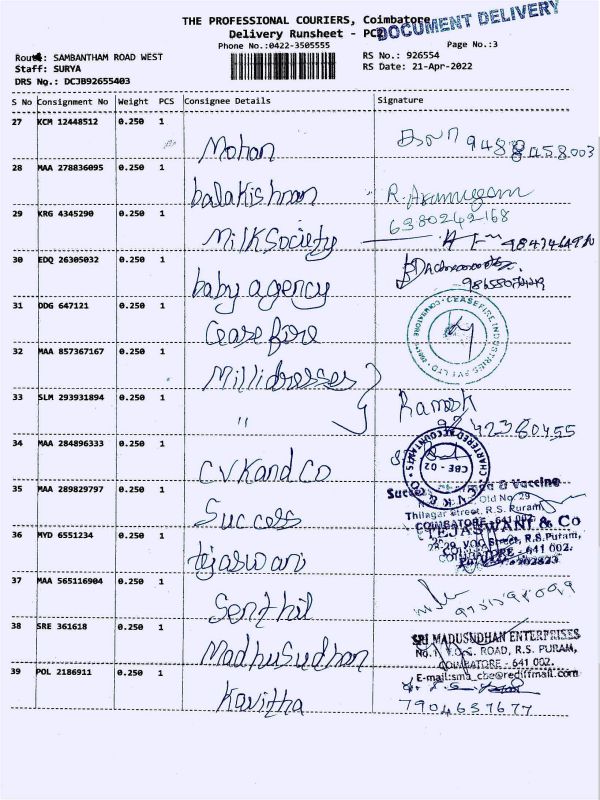 THE PROFESSIONAL COURIERS, Coimbatore
DOCUMENT DELIVERY
Delivery Runsheet - PCD
Phone No.:0422-3505555
Page No.:3
Route: SAMBANTHAM ROAD WEST
RS No.: 926554
Staff: SURYA
RS Date: 21-Apr-2022
DRS No.: DCJB92655403
S No Consignment No Weight PCS Consignee Details Signature
27 KCM 12448512 0.250 1
Mohan
28 MAA 278836095 0.250 1
balakishnan R. Arumugam
6380242168
29 KRG 4345290 0.250 1
Milk Society
30 EDQ 26305032 0.250 1
baby agency
31 DDG 647121 0.250 1
Cease fire
CEASEFIRE INDUSTRIES PVT LTD
32 MAA 857367167 0.250 1
Millidresses
33 SLM 293931894 0.250 1
" Ramesh
9842380455
34 MAA 284896333 0.250 1
CVK and Co
CHARTERED ACCOUNTANTS
CBE - 02
35 MAA 289829797 0.250 1
Success
& Vaccine
Old No. 29
Thilagar Street, R.S. Puram,
COIMBATORE - 641 002.
36 MYD 6551234 0.250 1
tejaswani
TEJASWANI & Co
Street, R.S. Puram,
641 002.
37 MAA 565116904 0.250 1
Senthil
38 SRE 361618 0.250 1
Madhusudhan
SRI MADUSUDHAN ENTERPRISES
ROAD, R.S. PURAM,
COIMBATORE - 641 002.
E-mail:sma_cbe@rediffmail.com
39 POL 2186911 0.250 1
Kavitha
7904657677